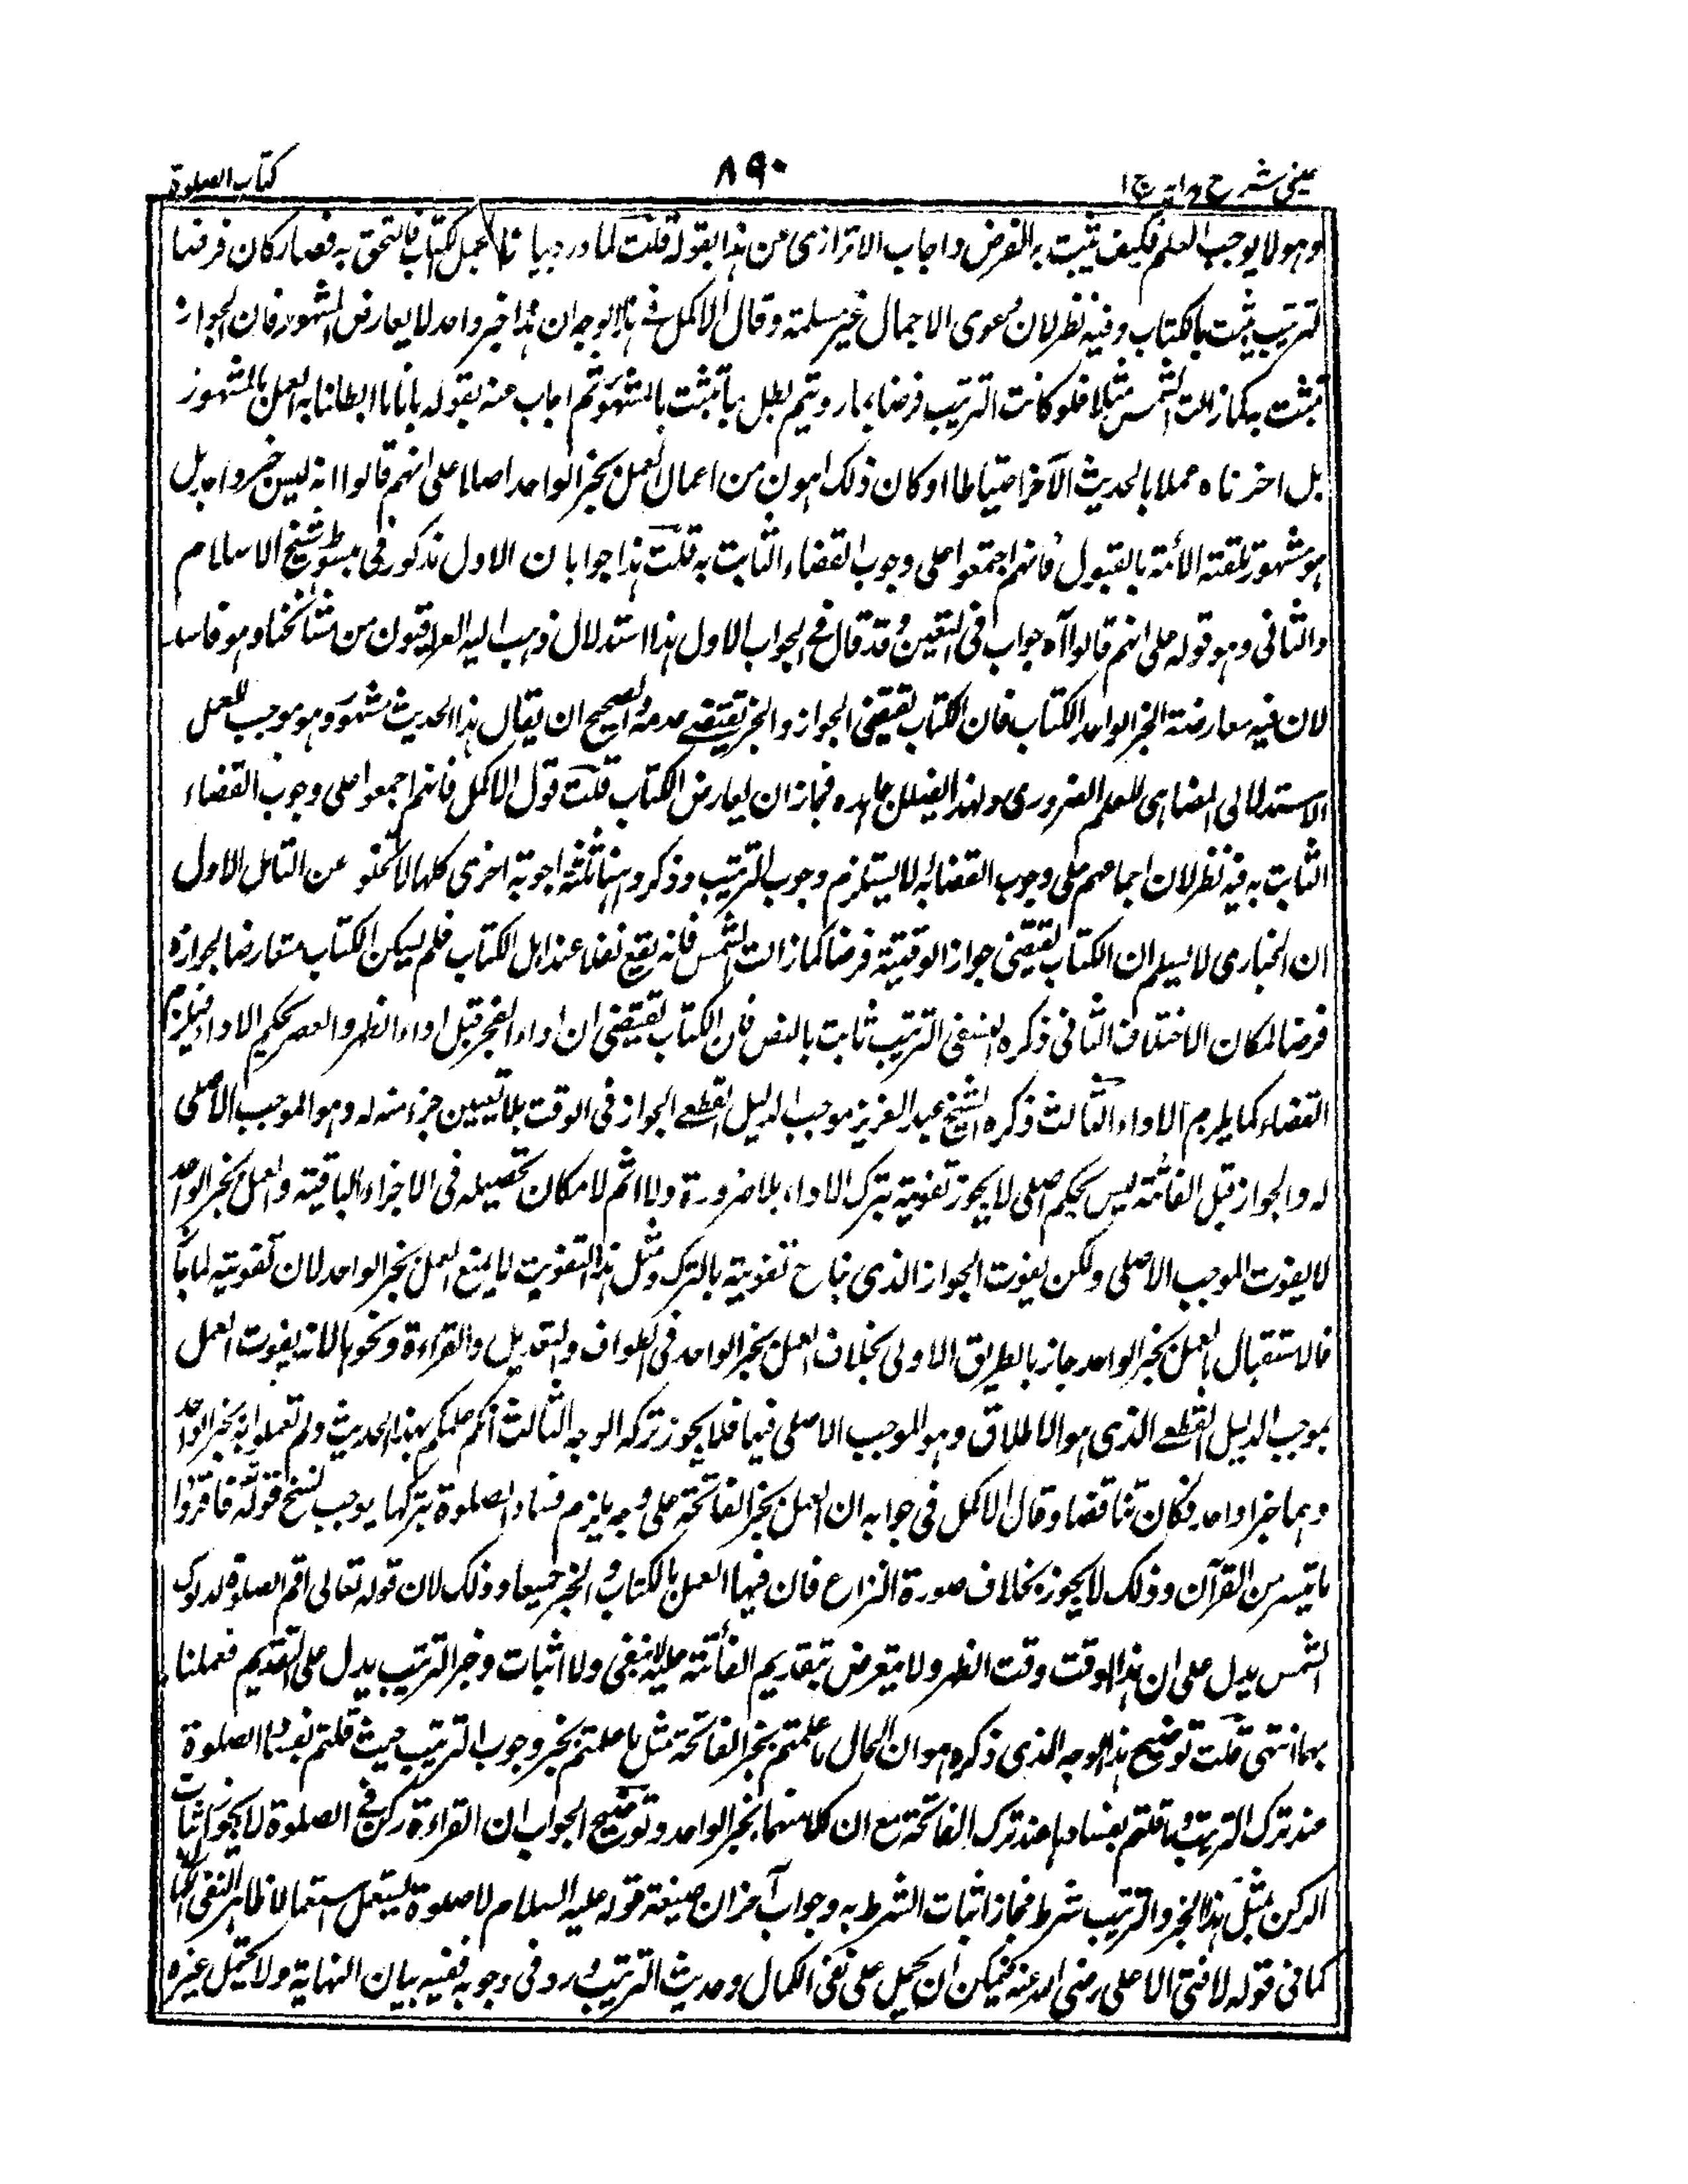 عینی شرح ہدایہ ج ۱
۸۹۰
کتاب الصلوة
وہو لا یوجب العلم فکیف یثبت بہ الفرض واجاب الاترازی عن ہذا بقولہ قلت لما ورد بیانا لمجمل الکتاب فالتحق بہ فصار کان فرضا
لترتیب یثبت بالکتاب وفیہ نظر لان دعوی الاجمال غیر مسلمة وقال الاکمل فی ہذا الوجہ ان ہذا خبر واحد لا یعارض المشہور فان الجواز
یثبت بہ کما زالت الشمس مثلا فلو کانت الترتیب فرضا بما رویتم لبطل ما یثبت بالمشہور ثم اجاب عنہ بقولہ بانا ما ابطلنا بہ العمل بالمشہور
بل اخرناہ عملا بالحدیث الآخر احتیاطا وکان ذلک اہون من اعمال العمل بخبر الواحد اصلا علی انہم قالوا انہ لیس خبر واحد بل
ہو مشہور تلقتہ الأئمة بالقبول فانہم اجمعوا علی وجوب القضاء الثابت بہ قلت ہذا جوابان الاول مذکور فی مبسوط شیخ الاسلام
والثانی وہو قولہ علی انہم قالوا آہ جواب فی وقد قال فی الجواب الاول ہذا استدلال ذہب الیہ العراقیون من مشائخنا وہو فاسد
لان فیہ معارضة الخبر الواحد الکتاب فان الکتاب یقتضی الجواز والخبر یقتضے عدمہ والصحیح ان یقال ہذا الحدیث مشہور وہو موجب للعمل
الاستدلالی المضاہی للعلم الضروری ولہذا یضلل جاحدہ فجاز ان یعارض الکتاب قلت قول الاکمل فانہم اجمعوا علی وجوب القضاء
الثابت بہ فیہ نظر لان اجماعہم علی وجوب القضاء بہ لا یستلزم وجوب الترتیب وذکروا ہنا ثلثة اجوبة اخری کلہا لا تخلو عن التامل الاول
ان الخبازی لا یسلم ان الکتاب یقتضی جواز الوقتیة فرضا کما زالت الشمس فانہ یقع نفلا عند اہل الکتاب فلم لیکن الکتاب متعارضا لجوازہ
فرضا لمکان الاختلاف الثانی ذکرہ النسفی الترتیب ثابت بالنص فان الکتاب یقتضی ان اداء الفجر قبل اداء الظہر والعصر بحکم الاداء فیلزم
القضاء کما یلزم الاداء الثالث ذکرہ الشیخ عبد العزیز موجب الدلیل القطعے الجواز فی الوقت بلا تعیین جزء منہ لہ وہو الموجب الاصلی
لہ والجواز قبل الفائتة لیس بحکم اصلی لا یجوز تفویتہ بترک الاداء بلا ضرورة ولا اثم لامکان تحصیلہ فی الاجزاء الباقیة والعمل بخبر الواحد
لا یفوت الموجب الاصلی ولکن یفوت الجواز الذی یباح تفویتہ بالترک ومثل ہذا التفویت لا یمنع العمل بخبر الواحد لان تفویتہ لما جاز
فالاستقبال بالعمل بخبر الواحد جاز بالطریق الاولی بخلاف العمل بخبر الواحد فی الطواف والتعدیل والقراءة ونحوہا لانہ یفوت العمل
بموجب الدلیل القطعے الذی ہو الاطلاق وہو الموجب الاصلی فیہا فلا یجوز ترکہ الوجہ الثالث انکم عملتم بہذا الحدیث ولم تعملوا بخبر الواحد
وہما خبرا واحد فکان تناقضا وقال الاکمل فی جوابہ ان العمل بخبر الفاتحة علی وجہ یلزم فساد الصلوة بترکہا یوجب نسخ قولہ فاقرؤا
ما تیسر من القرآن وذلک لا یجوز بخلاف صورة النزاع فان فیہا العمل بالکتاب والخبر جمیعا وذلک لان قولہ تعالی اقم الصلوة لدلوک
الشمس یدل علی ان ہذا الوقت وقت الظہر ولا یتعرض بتقدیم الفائتة علیہ لا بنفی ولا اثبات وخبر الترتیب یدل علی التقدیم فعملنا
بہما انتہی قلت توضیح ہذا الوجہ الذی ذکرہ ہو ان الحال ما عملتم بخبر الفاتحة مثل ما عملتم بخبر وجوب الترتیب حیث قلتم بفساد الصلوة
عند ترک الترتیب وما قلتم بفسادہا عند ترک الفاتحة مع ان کلا منہما بخبر الواحد وتوضیح الجواب ان القراءة رکن فی الصلوة لا یجوز اثبات
الرکن بمثل ہذا الخبر والترتیب شرط فجاز اثبات الشرط بہ وجواب آخر ان صیغة قولہ علیہ السلام لا صلوة یستعمل استعمالا ظاہرا لنفی
کما فی قولہ لا فتی الا علی رضی اللہ عنہ فیمکن ان یحمل علی نفی الکمال وحدیث الترتیب ورد فی وجوبہ ففیہ بیان النہایة ولا یحتمل غیرہ